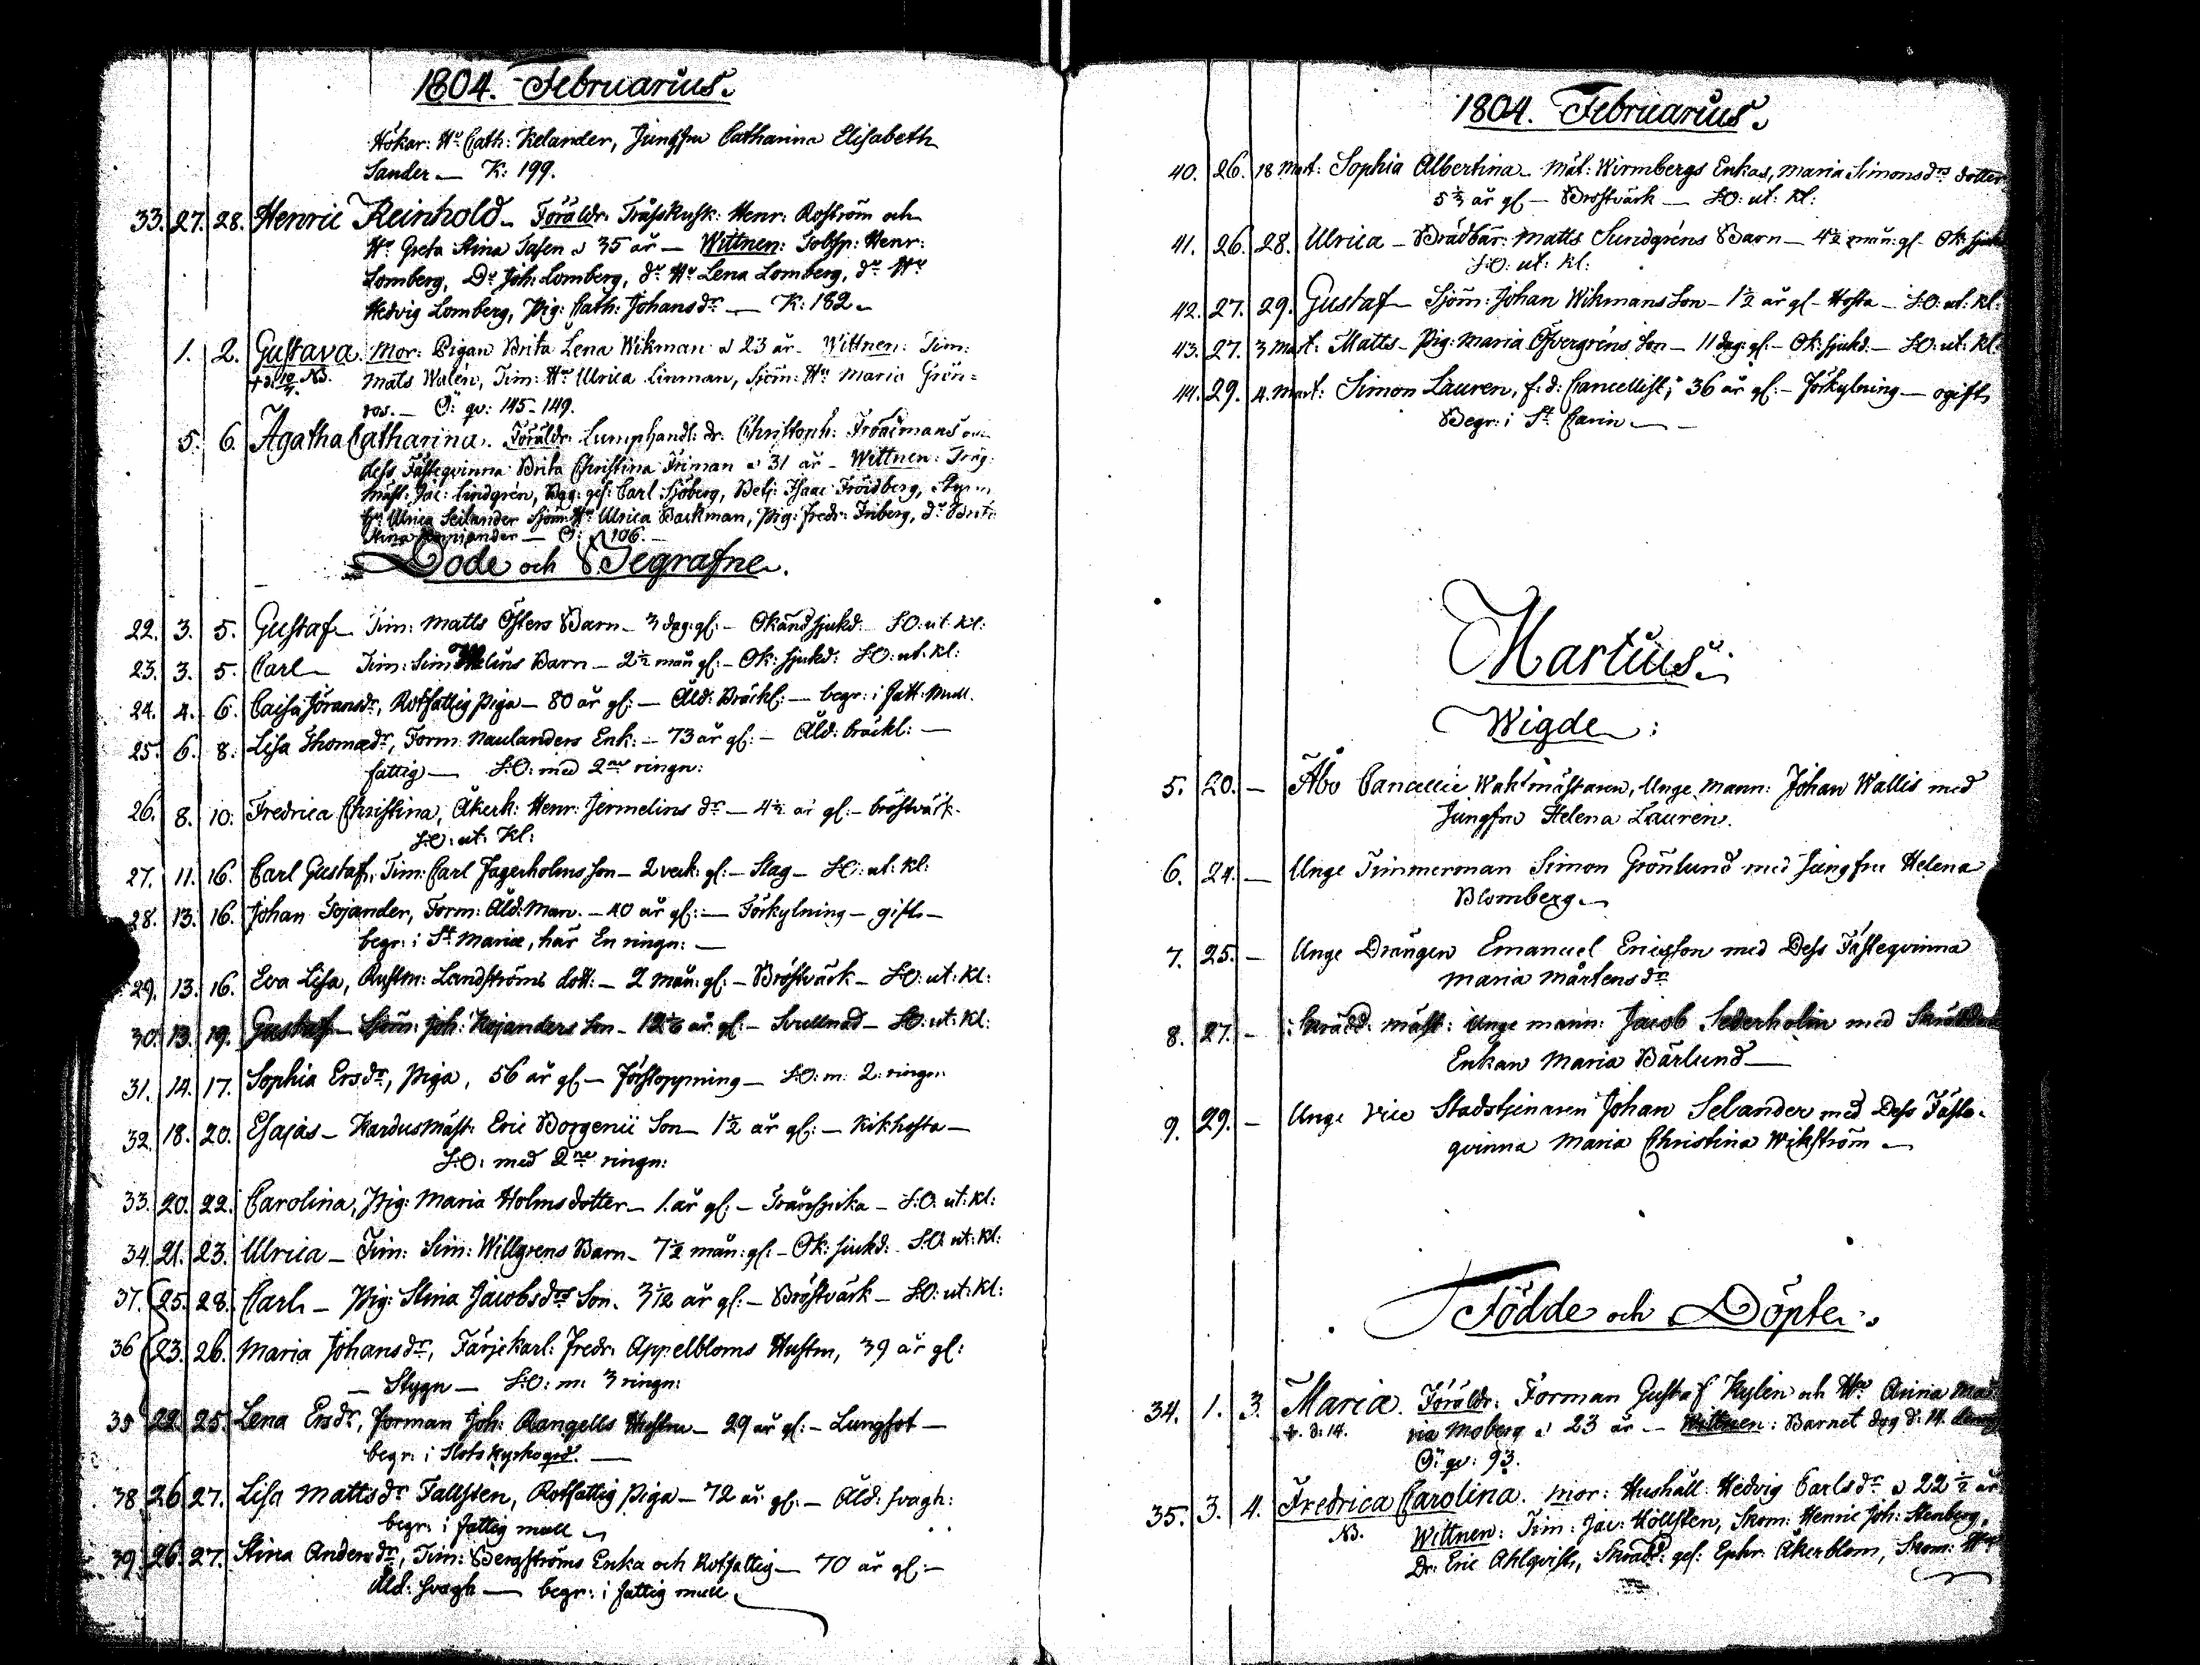 1804. Februarius.
Hökar: Hu Cath: Kelander, Jungfru Catharina Elisabeth
Sander — K: 199.
33. 27. 28. Henric Reinhold — Föräldr: Henr: Roström och
Hu Greta Stina 35 år — Wittnen: Henr:
Lomberg, Dr Joh: Lomberg, do Hu Lena Lomberg, do Hu
Hedvig Lomberg, Pig: Cath: Johansdr — K: 182 —
1. 2. Gustava. Mor: Pigan Brita Lena Wikman 23 år — Wittnen: Tim:
NB. Mats Walén, Tim: Hu Ulrica Linman, Sjöm: Hu Maria Grön=
ros. — Ö: qv: 145-149.
5. 6. Agatha Catharina. Föräldr: Lumphandl: dr: Christoph:
dess Fästeqvinna Brita Christina Friman 31 år — Wittnen: Träg:
mäst: Jac: Lindgrén, ges: Carl Sjöberg, Betj: Isaac Fröidberg,
Ulrica Seilander Sjöm: Hu Ulrica Backman, Pig: Fredr: Friberg, do
Stina — Ö: 106. —
Döde och Begrafne.
22. 3. 5. Gustaf — Tim: Matts Östers Barn — 3 dag: gl: — Okänd sjukd: S:O: ut: kl:
23. 3. 5. Carl — Tim: Sim: Barn — 2½ mån gl: — Ok: sjukd: S:O: ut: kl:
24. 4. 6. Caisa Göransdr, Rotfattig Piga — 80 år gl: — Åld: Bräckl: — begr: i fatt: Mull.
25. 6. 8. Lisa Thomædr, Form: Naulanders Enk: — 73 år gl: — Åld: bräckl: —
fattig — S:O: med 2ne ringn:
26. 8. 10. Fredrica Christina, Åkerk: Henr: Jermelins dr — 4½ år gl: — bröstvärk —
S:O: ut: kl:
27. 11. 16. Carl Gustaf, Tim: Carl Jagerholms Son — 2 veck: gl: — Slag — S:O: ut: kl:
28. 13. 16. Johan Gojander, Form: Åld: Man. — 40 år gl: — Förkylning — gift —
begr: i St Mariæ, här En ringn: —
29. 13. 16. Eva Lisa, Rustm: Landströms dott: — 2 mån: gl: — Bröstvärk — S:O: ut: kl:
30. 13. 19. Gustaf — Sjöm: Joh: Kojanders Son — år gl: — Svullnad — S:O: ut: kl:
31. 14. 17. Sophia Ersdr, Piga, 56 år gl — Förstoppning — S:O: m: 2: ringn:
32. 18. 20. Esajas — Kardusmäst: Eric Borgenii Son — 1½ år gl: — Kikhosta —
S:O: med 2ne ringn:
33. 20. 22. Carolina, Pig: Maria Holms dotter — 1. år gl: — — S:O: ut: kl:
34. 21. 23. Ulrica — Tim: Sim: Willgrens Barn — 7½ mån: gl: — Ok: sjukd: S:O: ut: kl:
37. 25. 28. Carl — Pig: Stina Jacobsdrs Son. 3 1/12 år gl: — Bröstvärk — S:O: ut: kl:
36 23. 26. Maria Johansdr, Färjekarl: Fredr: Appelbloms Hustru, 39 år gl:
— Stygn — S:O: m: 3 ringn:
35 22. 25. Lena Ersdr, Forman Joh: Rangells Hustru — 29 år gl: — Lungsot —
begr: i Slotskyrkogrd. —
38 26 27. Lisa Mattsdr Tallsten, Rotfattig Piga — 72 år gl: — Åld: svagh:
begr: i fattig mull —
39. 26. 27. Stina Andersdr, Tim: Bergströms Enka och Rotfattig — 70 år gl: —
Åld: svagh — begr: i fattig mull
1804. Februarius.
40. 26. 18 Mart: Sophia Albertina — Mat: Wirmbergs Enkas, Maria Simonsdrs dotter
5½ år gl — Bröstvärk — S:O: ut: kl:
41. 26. 28. Ulrica — Brädbär: Matts Sundgréns Barn — 4½ mån: gl — Ok: sjuk
S:O: ut: kl:
42. 27. 29. Gustaf — Sjöm: Johan Wikmans Son — 1½ år gl — Hosta — S:O: ut: kl:
43. 27. 3 Mart: Matts — Pig: Maria Öfvergréns Son — 11 dag: gl — Ok: sjukd: — S:O: ut: kl:
44. 29. 4. Mart: Simon Lauren, f: d: Cancellist, 36 år gl: — Förkylning — ogift,
Begr: i St Carin —
Martius:
Wigde:
5. 20. — Åbo Cancellie Waktmästaren, Unge Mann: Johan Wallis med
Jungfru Helena Laurén.
6. 24. — Unge Timmerman Simon Grönlund med Jungfru Helena
Blomberg —
7. 25. — Unge Drängen Emanuel Ericsson med Dess Fästeqvinna
Maria Mårtensdr
8. 27. — Skrädd: mäst: Unge mann: Jacob Sederholm med
Enkan Maria Bärlund —
9. 29. — Unge Vice Stadstjenaren Johan Selander med Dess Fäste-
qvinna Maria Christina Wikström —
Födde och Döpte:
34. 1. 3. Maria. Föräldr: Forman Gustaf Kylén och Hu Anna Ma
d: 14. ria Moberg 23 år — Wittnen: Barnet dog d: 14.
Ö: qv: 93.
35. 3. 4. Fredrica Carolina. Mor: Hushåll: Hedvig Carlsdr 22½ år
NB. Wittnen: Tim: Jac: Höllsten, Skom: Henric Joh: Stenberg,
Dr: Eric Ahlqvist, Skrädd: ges: Ephr: Åkerblom, Skom: Hu